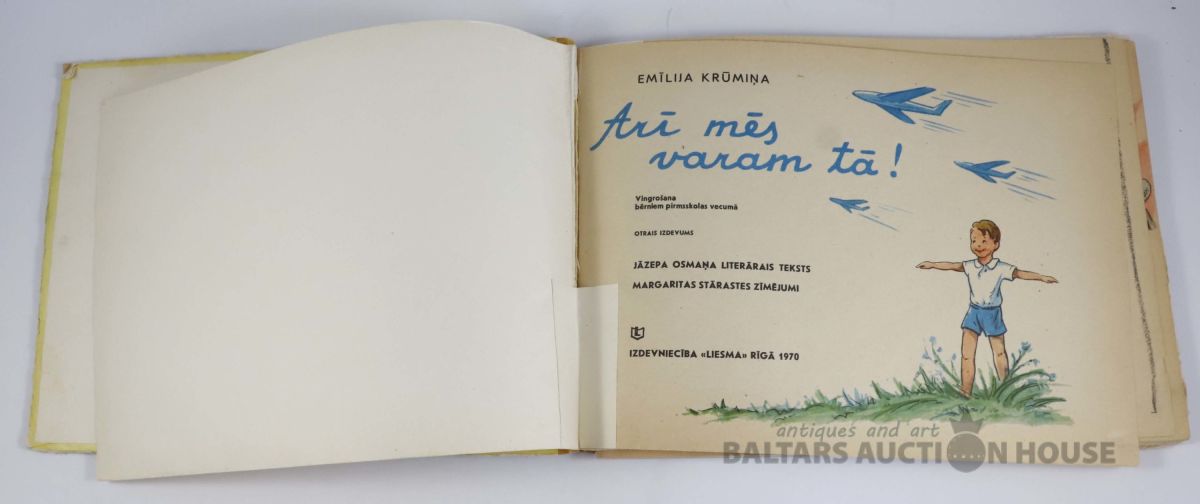 EMĪLIJA KRŪMIŅA
Arī mēs
varam tā!
Vingrošana
bērniem pirmsskolas vecumā
OTRAIS IZDEVUMS
JĀZEPA OSMAŅA LITERĀRAIS TEKSTS
MARGARITAS STĀRASTES ZĪMĒJUMI
IZDEVNIECĪBA «LIESMA» RĪGĀ 1970
antiques and art
BALTARS AUCTION HOUSE